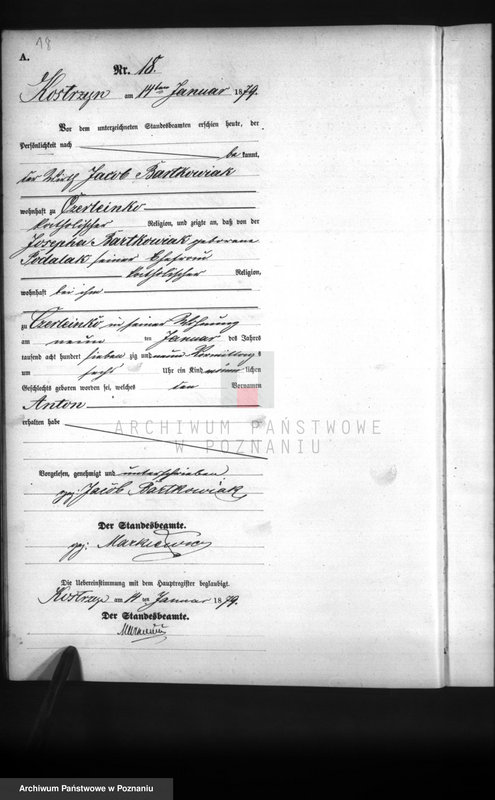 18
A.
Nr. 18.
Kostrzyn am 14ten Januar 1879.
Vor dem unterzeichneten Standesbeamten erschien heute, der
Persönlichkeit nach bekannt,
der Wirth Jacob Bartkowiak
wohnhaft zu Czerleinko
katholischer Religion, und zeigte an, daß von der
Josepha Bartkowiak geborene
Podalak seiner Ehefrau
katholischer Religion,
wohnhaft bei ihm
zu Czerleinko in seiner Wohnung
am neun ten Januar des Jahres
tausend acht hundert siebenzig und neun Vormittags
um sechs Uhr ein Kind männlichen
Geschlechts geboren worden sei, welches den Vornamen
Anton
erhalten habe
ARCHIWUM PAŃSTWOWE
W POZNANIU
Vorgelesen, genehmigt und unterschrieben
gez. Jacob Bartkowiak
Der Standesbeamte.
gez. Markiewicz
Die Uebereinstimmung mit dem Hauptregister beglaubigt.
Kostrzyn am 14 ten Januar 1879.
Der Standesbeamte.
Archiwum Państwowe w Poznaniu